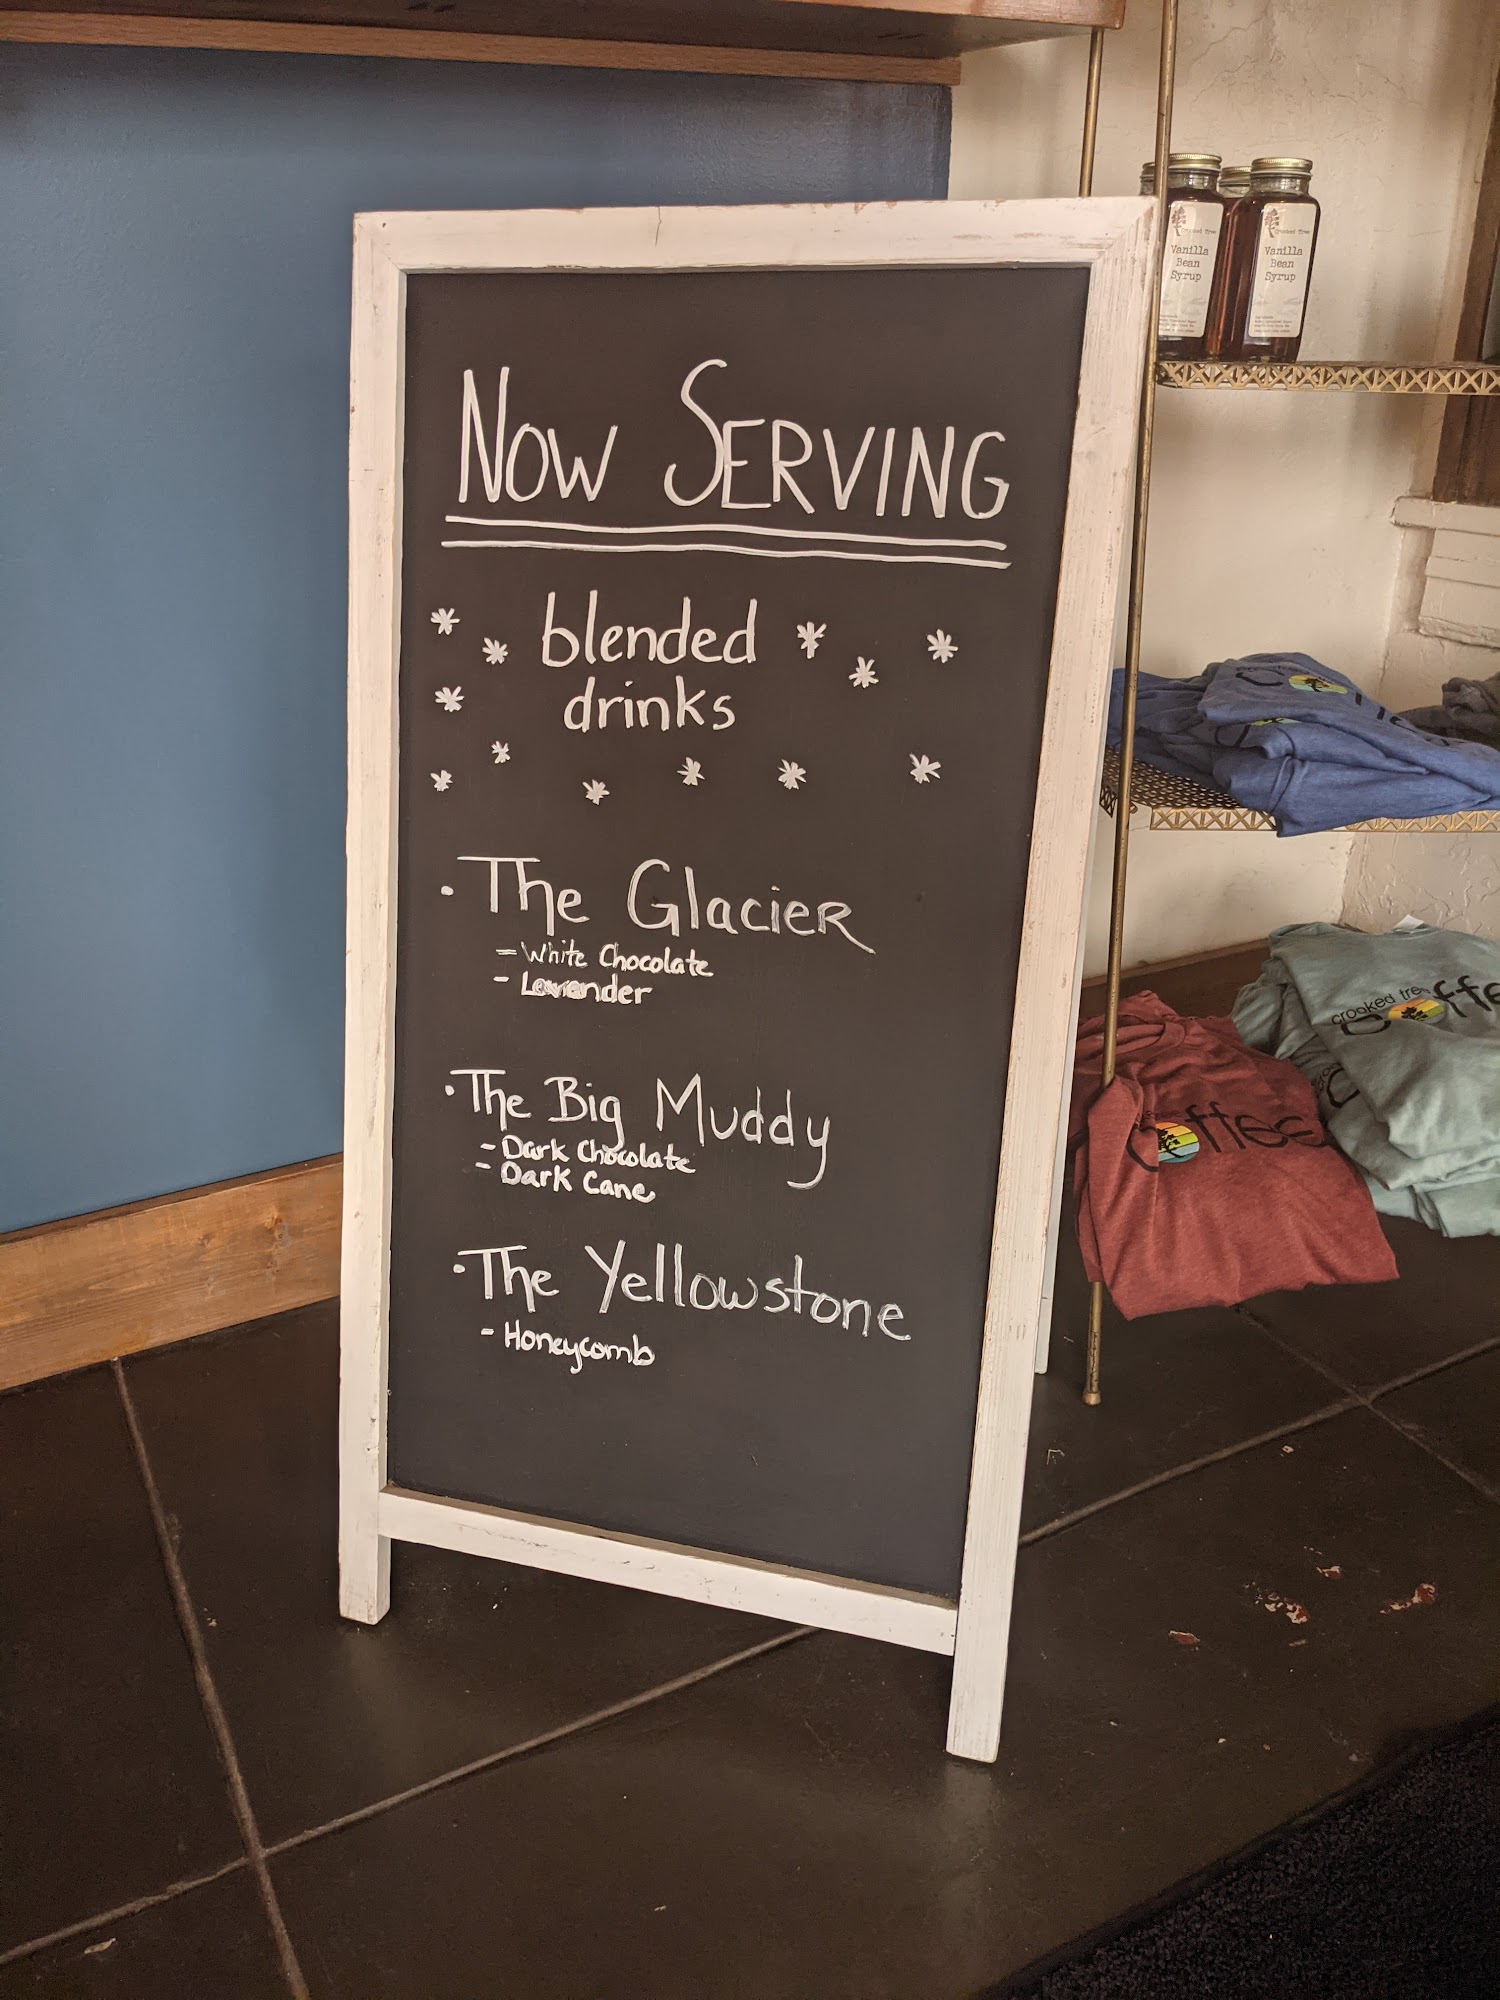 NOW SERVING
blended
drinks
• The Glacier
- White Chocolate
- Lavender
• The Big Muddy
- Dark Chocolate
- Dark Cane
• The Yellowstone
- Honeycomb
Crooked Tree
Vanilla
Bean
Syrup
Crooked Tree
Vanilla
Bean
Syrup
crooked tree
coffee
coffee